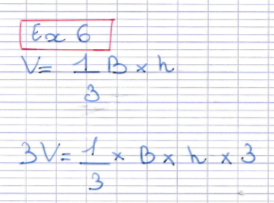 Ex 6
V= 1/3 B × h
3V= 1/3 × B × h × 3